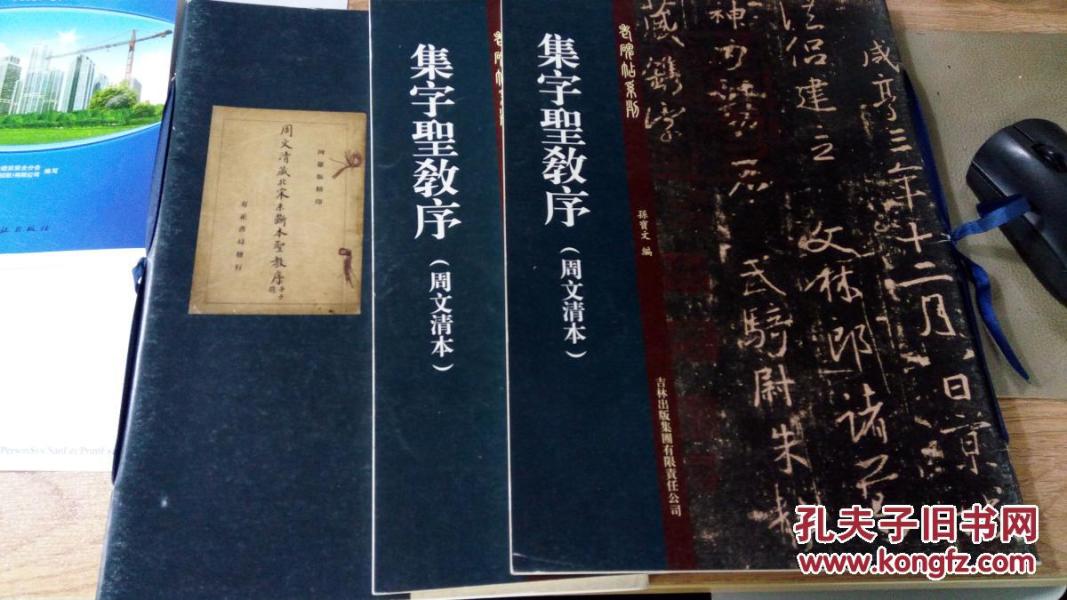 編写
出版社
周文清藏北宋未斷本聖教序
有正書局發行
集字聖教序
（周文清本）
集字聖教序
（周文清本）
老碑帖系列
孫寶文 編
吉林出版集團有限責任公司
咸亨三年十二月八日京城
法侶建立
文林郎諸葛
神力勒石
武騎尉朱
藏鐫字
孔夫子旧书网
www.kongfz.com